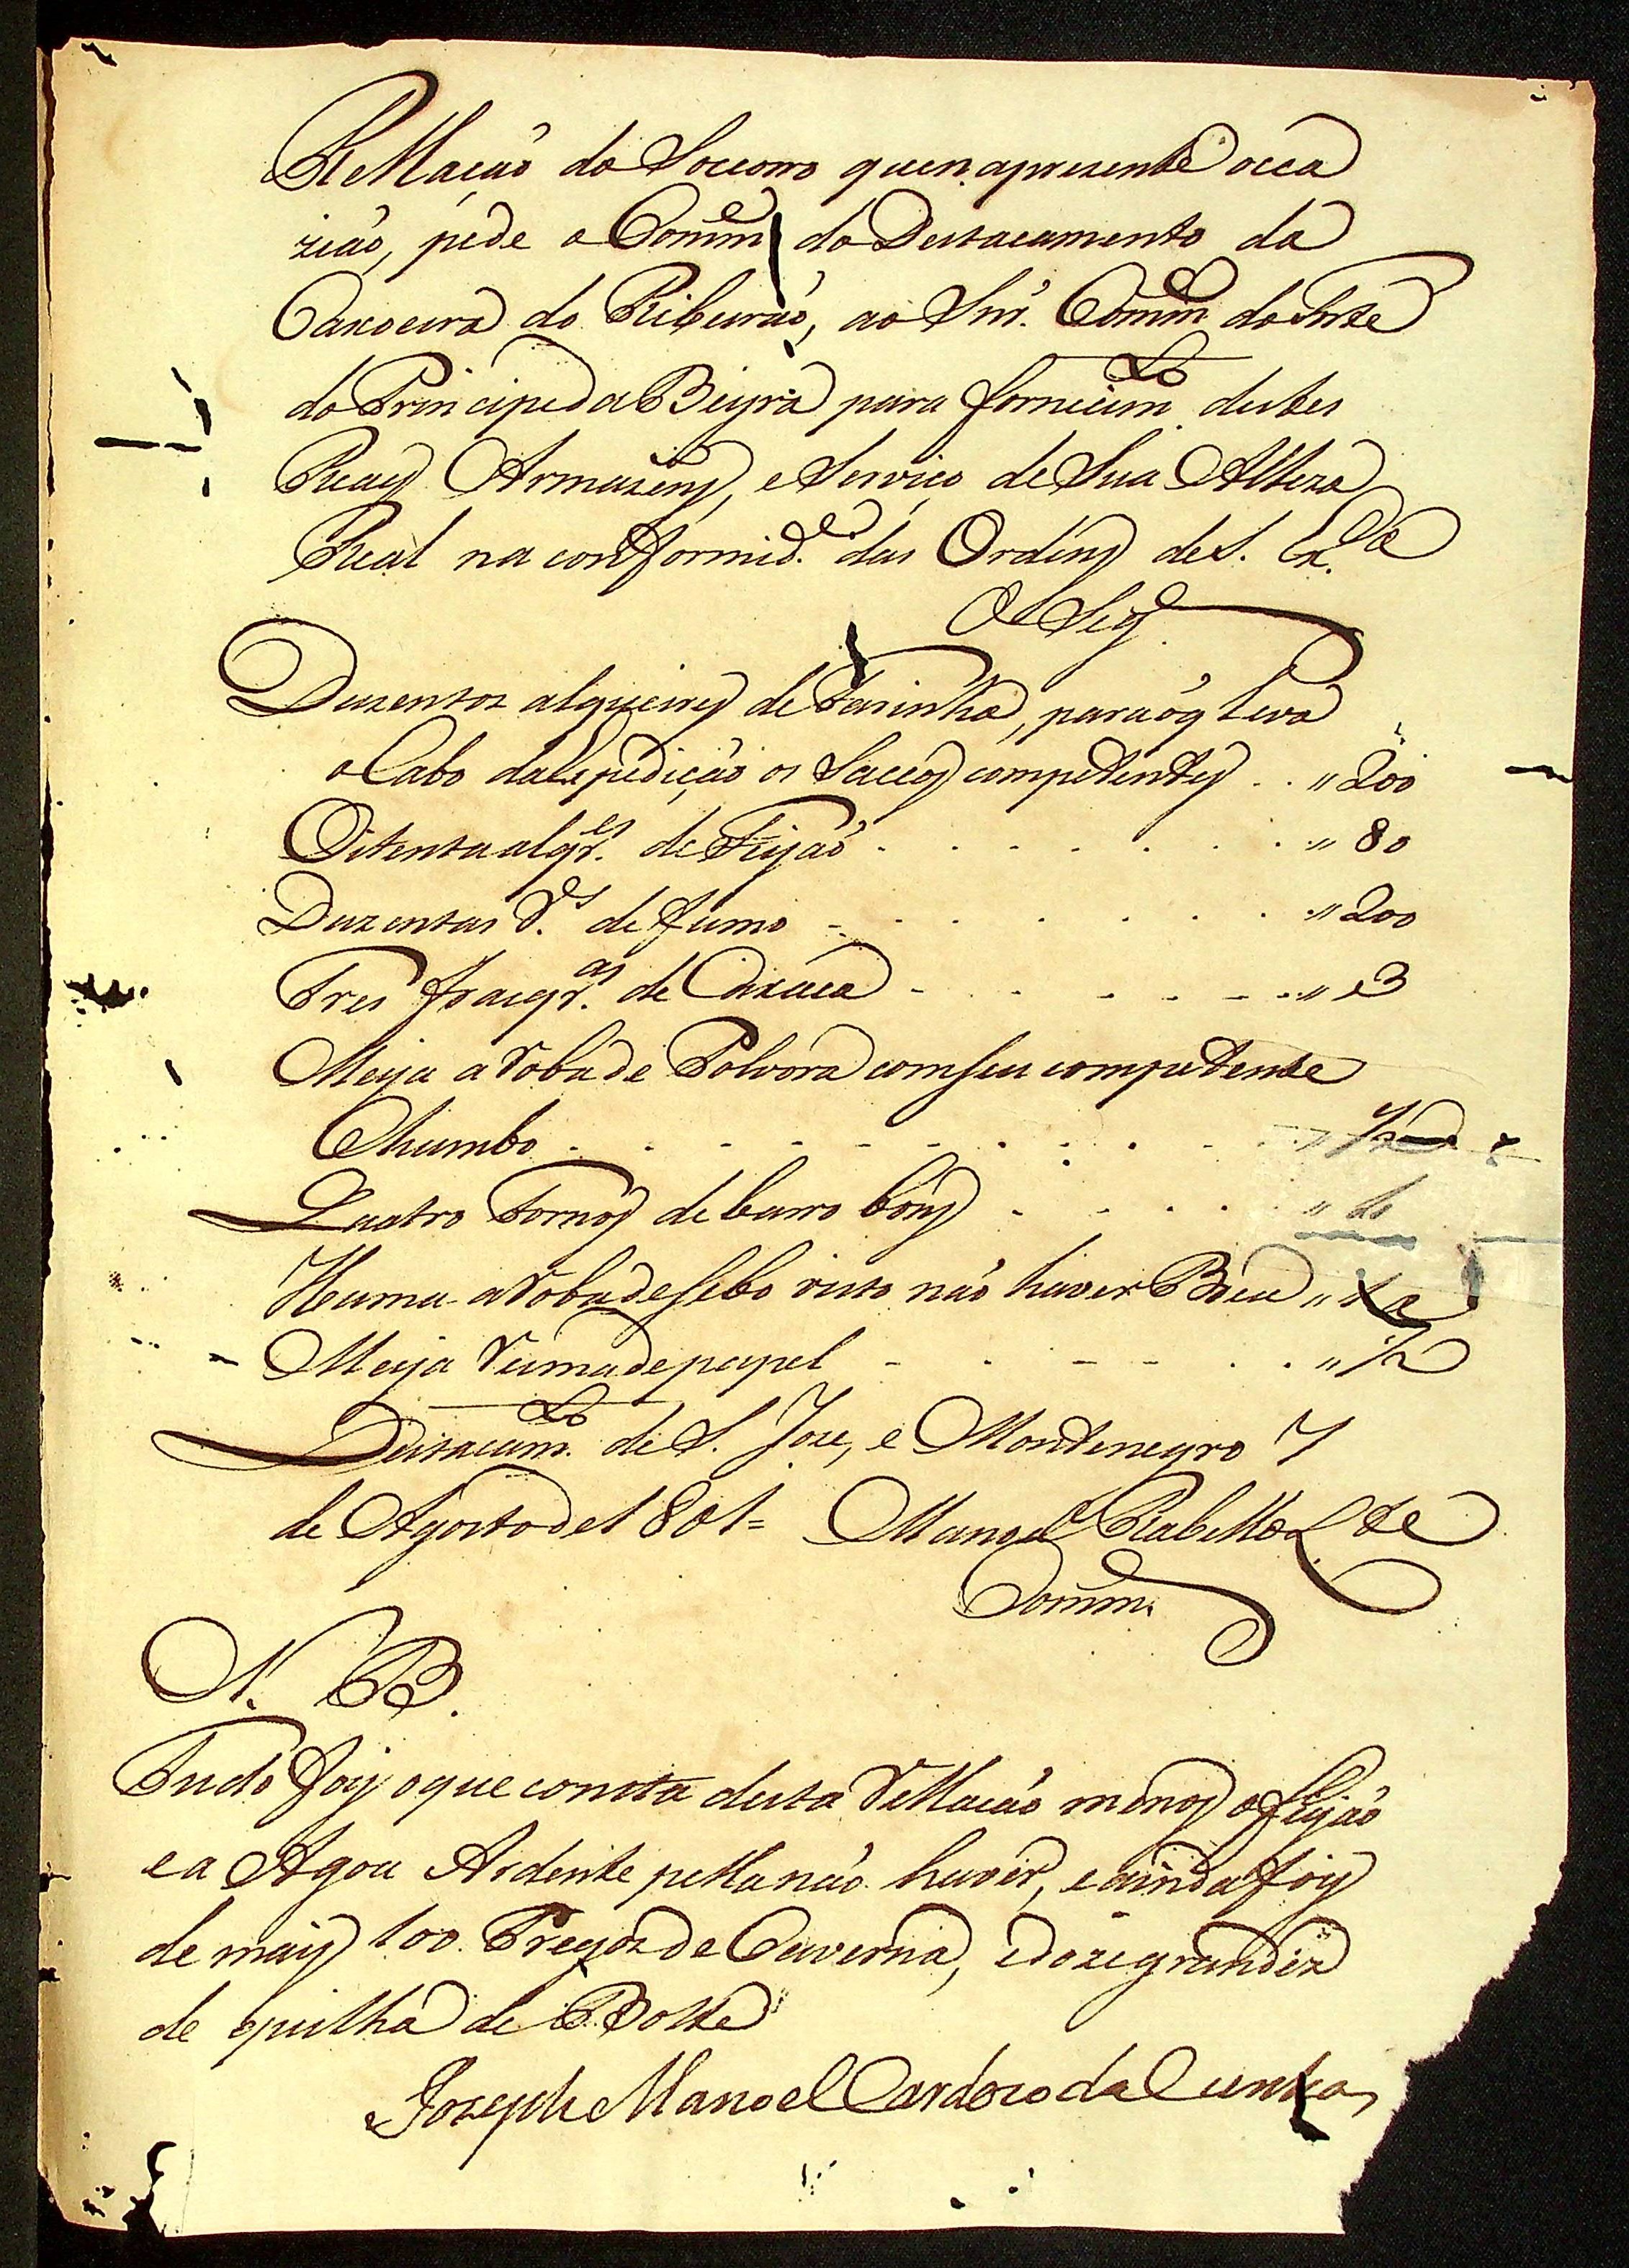 Rellação do Soccorro que na prezente occa
zião, pede o Comm.e do Destacamento da
Caxoeira do Ribeirão, ao Snr. Comm.e do Forte
do Principe da Beyra para fornecim.to destes
Reaes Armazens, e Serviço de Sua Alteza
Real na conformid.e das Ordens de S. Ex.cia
O Seg.
Duzentos alqueires de Farinha, para o q leva
o Cabo da Expedição os Saccos competentes . . " 200
Oitenta alqr.es de Feijão . . . . . . . " 80
Duzentas V.as de fumo - . . . . . . " 200
Tres frasqr.as de Caxaca - . . - - - . " 3
Meya aroba de Polvora com seu competente
Chumbo . . . . . . . . . . " 1/2
Quatro Fornos de barro bons . . . . . "
Huma aroba de sebo visto não haver Breu "
Meya rema de papel - . - - . . " 1/2
Destacam.to de S. Joze, e Montenegro 7
de Agosto de 1801= Manoel Rabello Lte
Comm.e
N. B.
Tudo foy o que consta desta rellação menos o feijão
e a Agoa Ardente pella não haver, e ainda foy
de mais 100 Pregos de Caverna, e doze grandes
de quilha de Botte
Jozeph Manoel Cardozo da Cunha